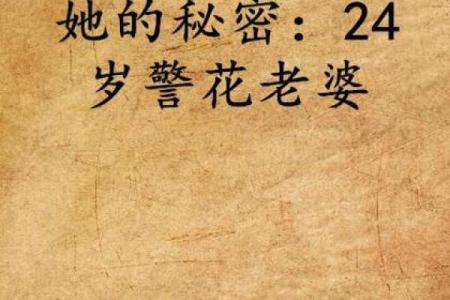 她的秘密：24
岁警花老婆